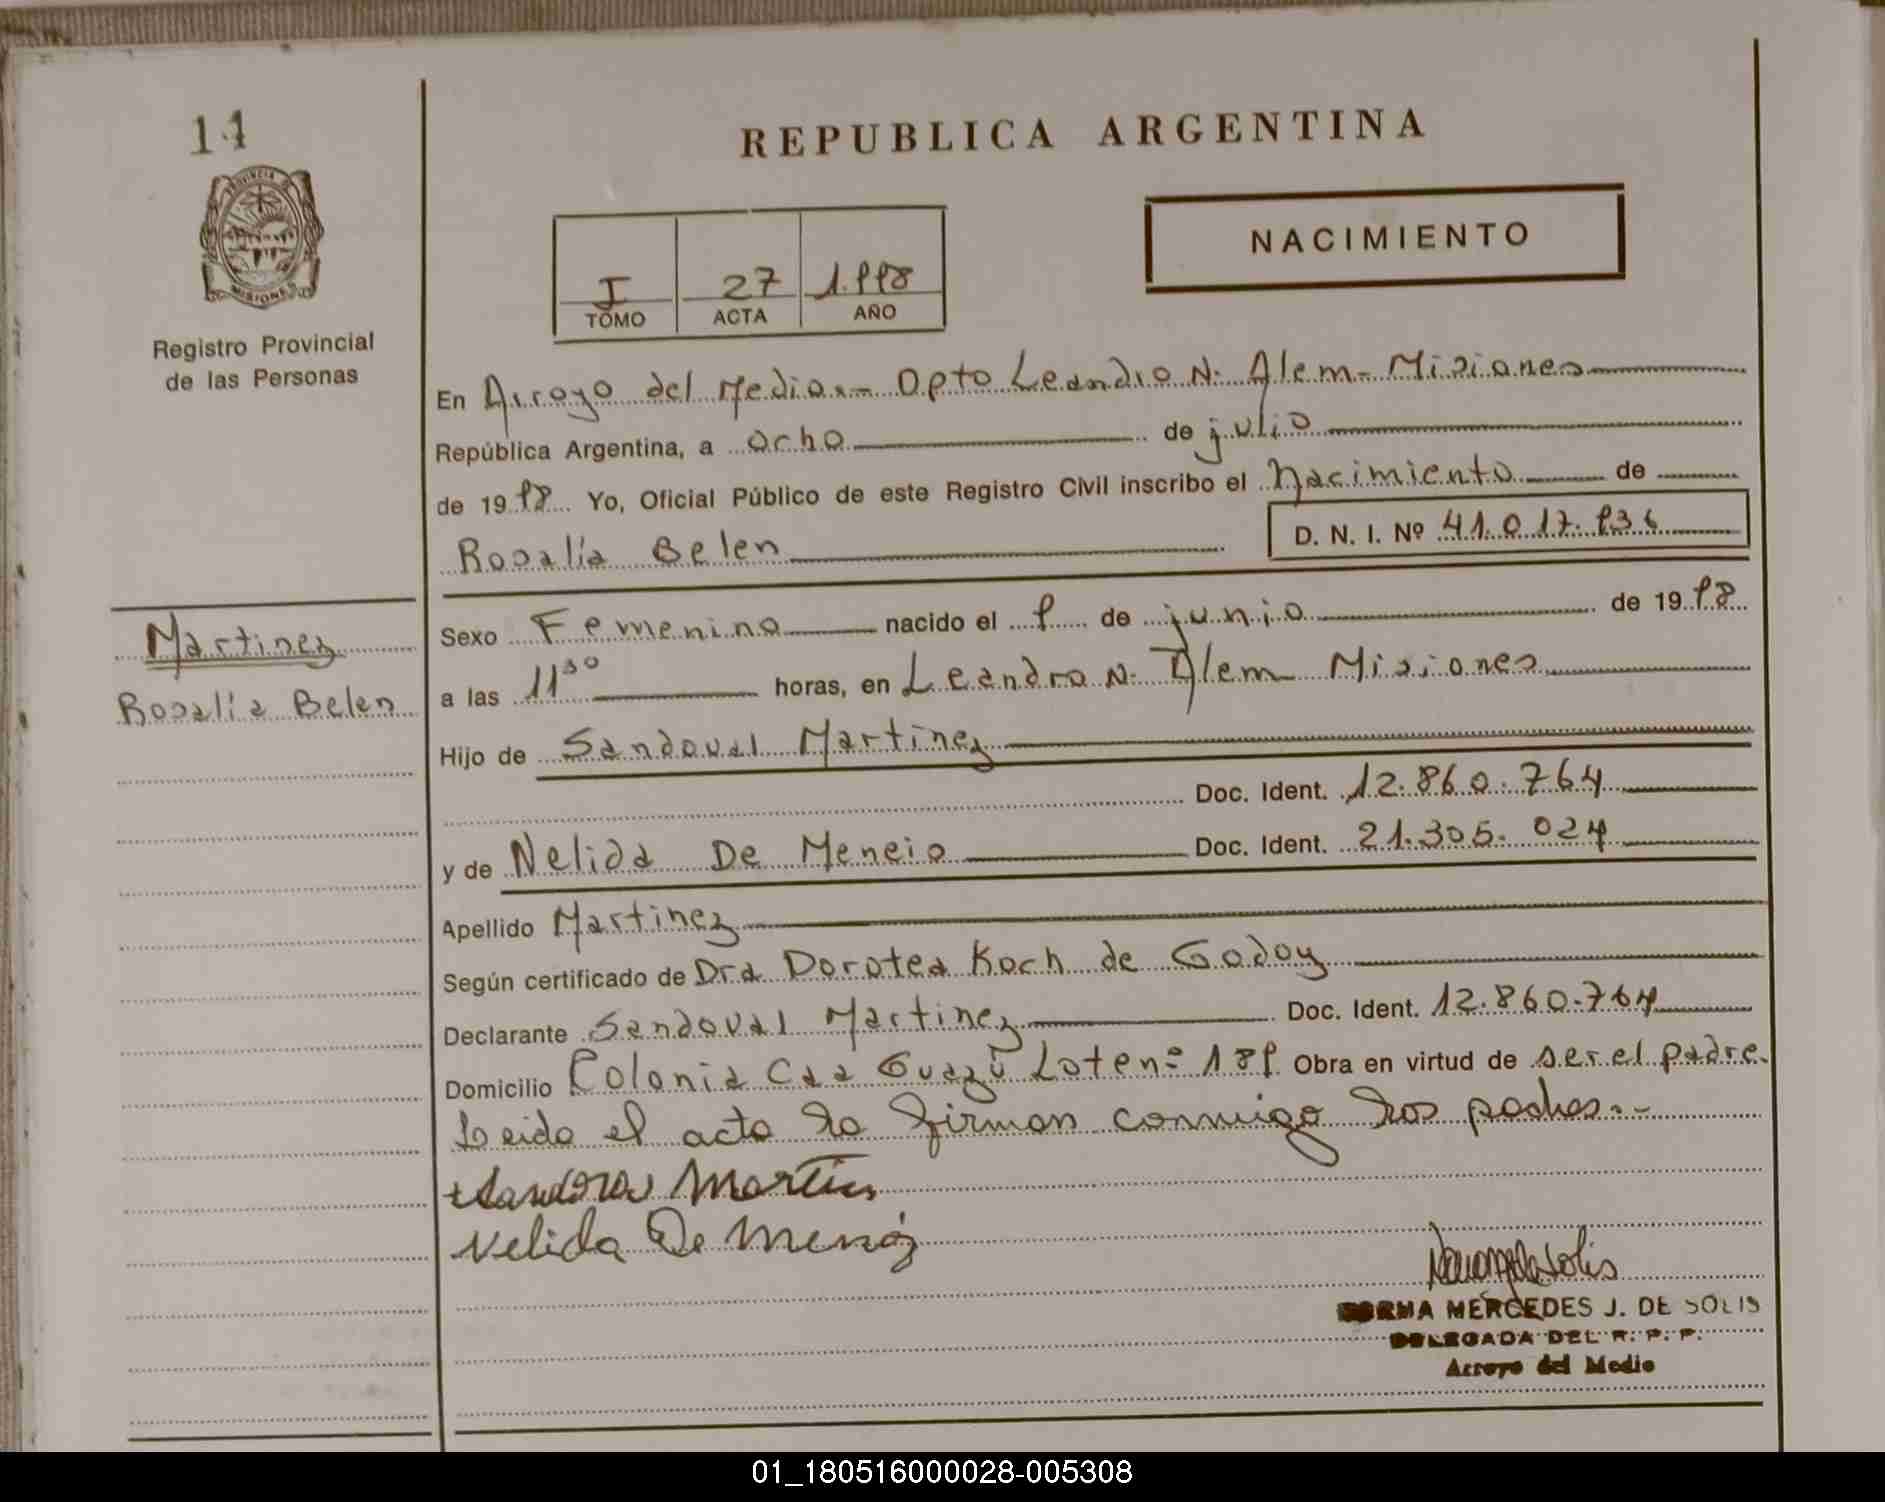 14
REPUBLICA ARGENTINA
PROVINCIA DE
MISIONES
Registro Provincial
de las Personas
I 27 1.998
TOMO ACTA AÑO
NACIMIENTO
En Arroyo del Medio.- Dpto Leandro N. Alem - Misiones
República Argentina, a ocho de julio
de 1998 Yo, Oficial Público de este Registro Civil inscribo el Nacimiento de
Rosalía Belen D. N. I. Nº 41.017.936
Martinez
Rosalía Belen
Sexo Femenino nacido el 9 de junio de 1998
a las 11³⁰ horas, en Leandro N. Alem Misiones
Hijo de Sandoval Martinez
Doc. Ident. 12.860.764
y de Nelida De Meneio Doc. Ident. 21.305.024
Apellido Martinez
Según certificado de Dra Dorotea Koch de Godoy
Declarante Sandoval Martinez Doc. Ident. 12.860.764
Domicilio Colonia Caa Guazú Lote nº 189 Obra en virtud de ser el padre.
Leida el acta la firman conmigo los padres.-
Sandoval Martinez
Nelida De
NORMA MERCEDES J. DE SOLIS
DELEGADA DEL R. P. P.
Arroyo del Medio
01_180516000028-005308